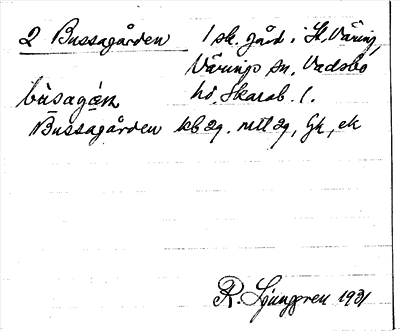 2 Bussagården 1 sk. gård i St. Väring,
Värings sn, Vadsbo
hd, Skarab. l.
bùsagán
Bussagården kb 29. mtl 29, Gk, ek
R. Ljunggren 1931